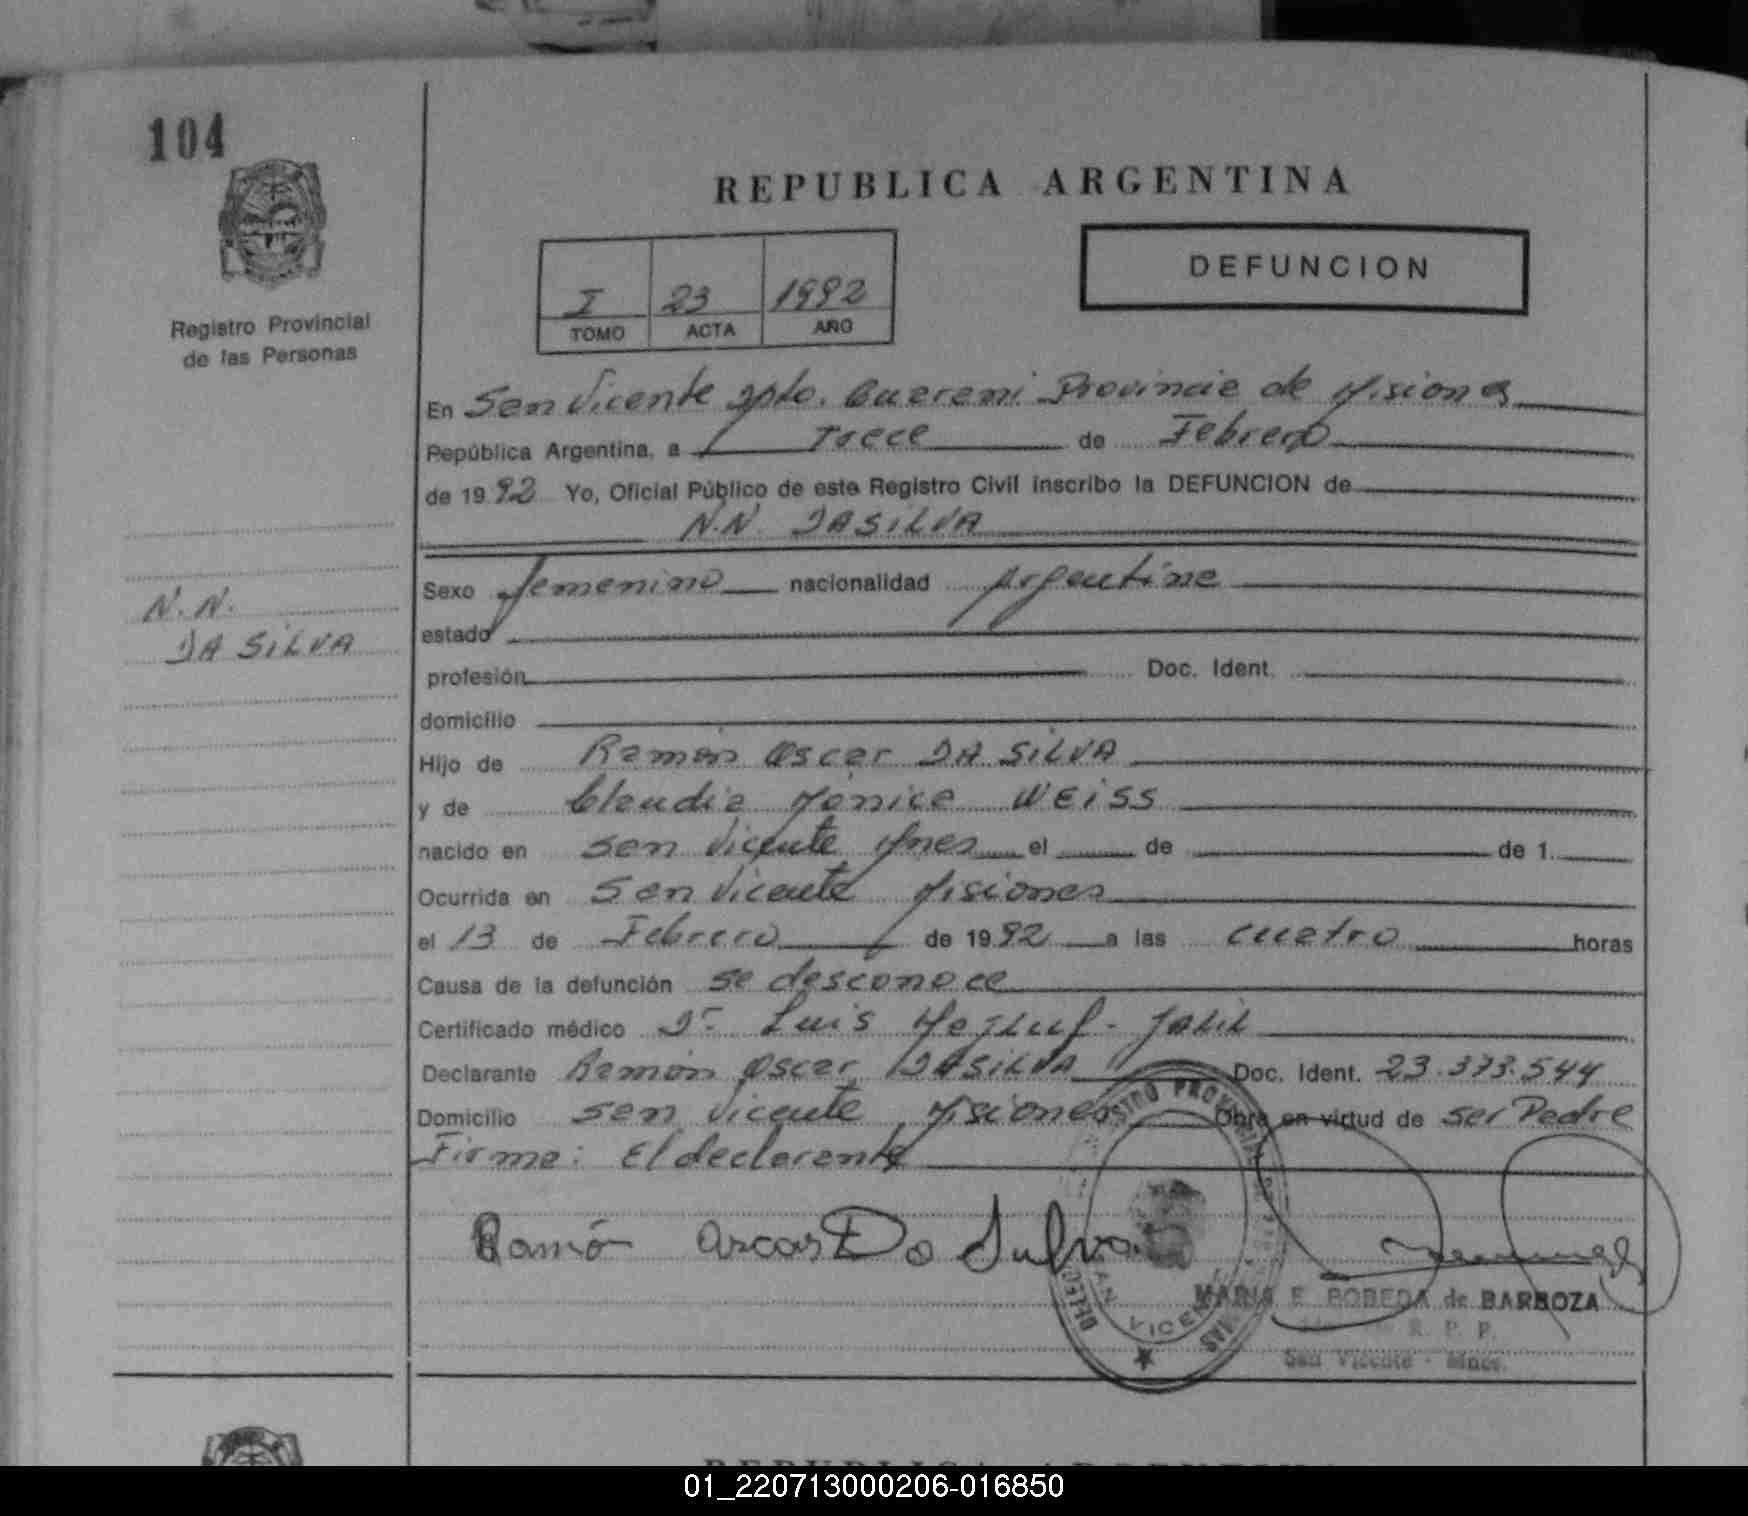 104
REPUBLICA ARGENTINA
I 23 1992
TOMO ACTA AÑO
DEFUNCION
Registro Provincial
de las Personas
En San Vicente Dpto. Guarani Provincia de Misiones
República Argentina, a Trece de Febrero
de 1992 Yo, Oficial Público de este Registro Civil inscribo la DEFUNCION de
N.N. DASILVA
N.N.
DA SILVA
Sexo femenino nacionalidad Argentina
estado
profesión Doc. Ident.
domicilio
Hijo de Ramón Oscar DA SILVA
y de Claudia Monica WEISS
nacido en San Vicente Mnes el de de 1
Ocurrida en San Vicente Misiones
el 13 de Febrero de 1992 a las cuatro horas
Causa de la defunción se desconoce
Certificado médico Dr. Luis JALIL
Declarante Ramón Oscar DASILVA Doc. Ident. 23.373.544
Domicilio San Vicente Misiones Obra en virtud de ser Padre
Firma: El declarante
Ramón Da Silva
MARIA E. BOBEDA de BARBOZA
R. P. P.
San Vicente - Mnes.
SAN VICENTE
REPUBLICA ARGENTINA
01_220713000206-016850